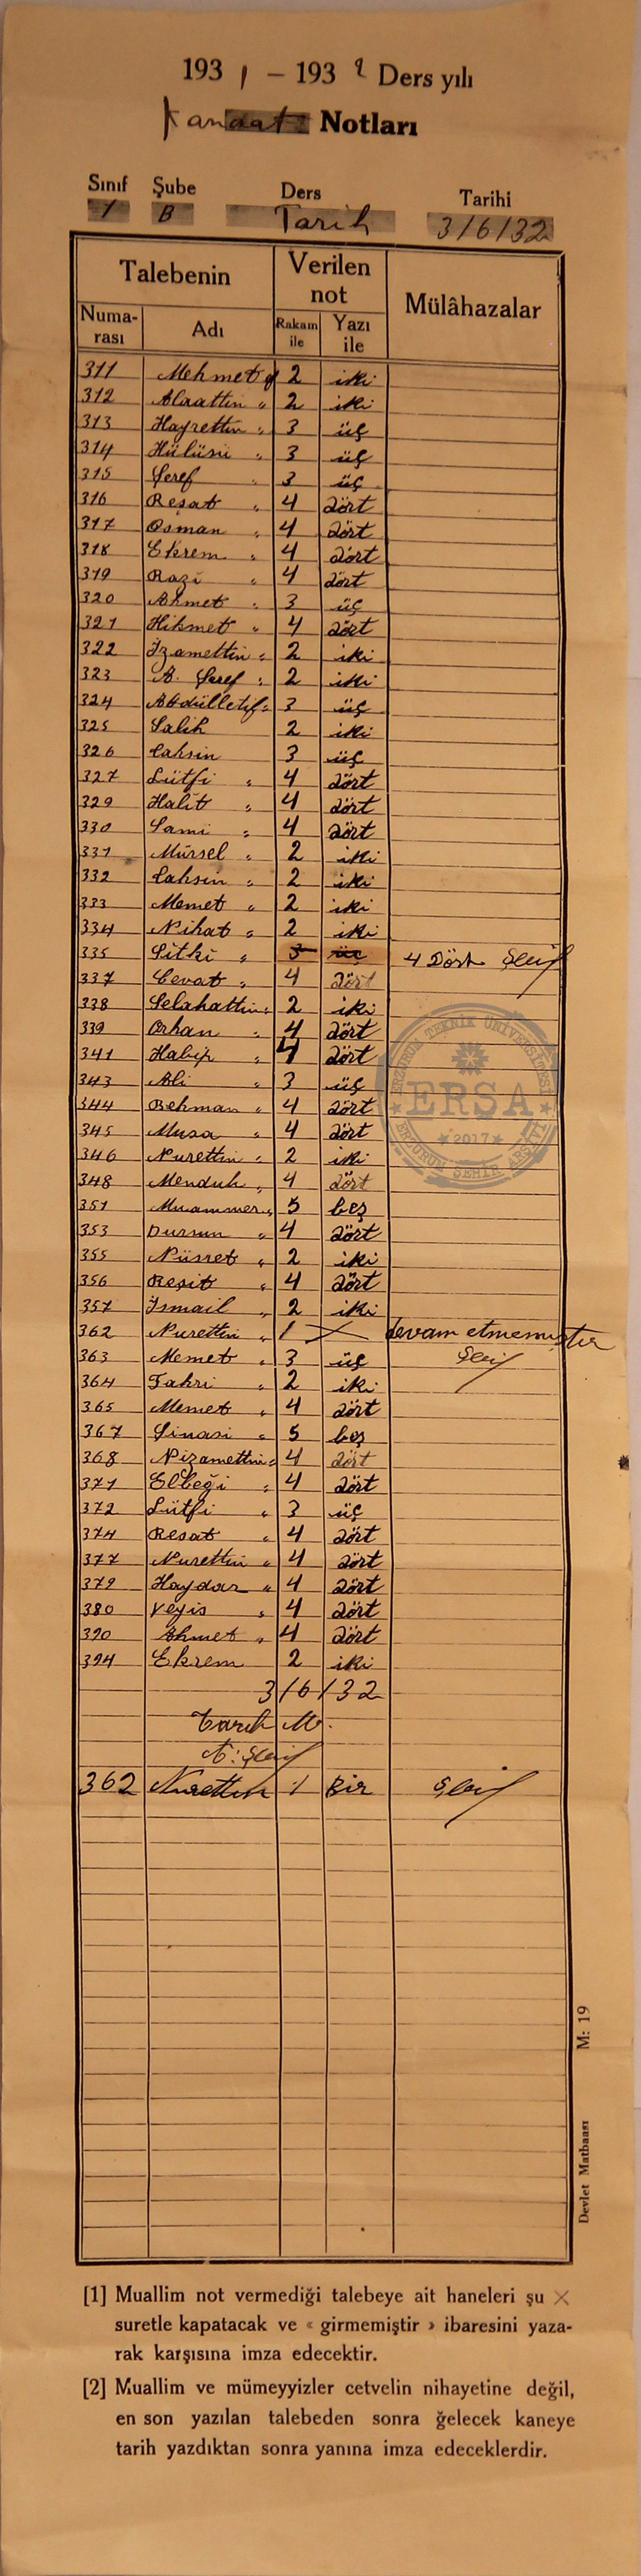 193 1 – 193 2 Ders yılı
Kanaat Notları
Sınıf Şube Ders Tarihi
1 B Tarih 3/6/32
Talebenin Verilen not Mülâhazalar
Numarası Adı Rakam ile Yazı ile
311 Mehmet ef 2 iki
312 Alaattin " 2 iki
313 Hayrettin " 3 üç
314 Hülüsi " 3 üç
315 Şeref " 3 üç
316 Reşat " 4 dört
317 Osman " 4 dört
318 Ekrem " 4 dört
319 Razi " 4 dört
320 Ahmet " 3 üç
321 Hikmet " 4 dört
322 İzamettin " 2 iki
323 A. Şeref " 2 iki
324 Abdülletif " 3 üç
325 Salih 2 iki
326 Tahsin 3 üç
327 Lütfi " 4 dört
329 Halit " 4 dört
330 Sami " 4 dört
331 Mürsel " 2 iki
332 Tahsin " 2 iki
333 Memet " 2 iki
334 Nihat " 2 iki
335 Sıtkı " 3 üç 4 Dört
337 Cevat " 4 dört
338 Selahattin " 2 iki
339 Orhan " 4 dört
341 Habip " 4 dört
343 Ali " 3 üç
344 Behman " 4 dört
345 Musa " 4 dört
346 Nurettin " 2 iki
348 Menduh " 4 dört
351 Muammer " 5 beş
353 Dursun " 4 dört
355 Nüsret " 2 iki
356 Reşit " 4 dört
357 İsmail " 2 iki
362 Nurettin " 1 × devam etmemiştir
363 Memet " 3 üç
364 Fahri " 2 iki
365 Memet " 4 dört
367 Şinasi " 5 beş
368 Nizamettin " 4 dört
371 Elbeği " 4 dört
372 Lütfi " 3 üç
374 Resat " 4 dört
377 Nurettin " 4 dört
379 Haydar " 4 dört
380 Veyis " 4 dört
390 Ahmet " 4 dört
394 Ekrem 2 iki
3/6/32
Tarih M.
362 Nurettin 1 Bir
ERZURUM TEKNİK ÜNİVERSİTESİ
ERSA
2017
ERZURUM ŞEHİR ARŞİVİ
Devlet Matbaası M: 19
[1] Muallim not vermediği talebeye ait haneleri şu ×
suretle kapatacak ve « girmemiştir » ibaresini yaza-
rak karşısına imza edecektir.
[2] Muallim ve mümeyyizler cetvelin nihayetine değil,
en son yazılan talebeden sonra ğelecek kaneye
tarih yazdıktan sonra yanına imza edeceklerdir.